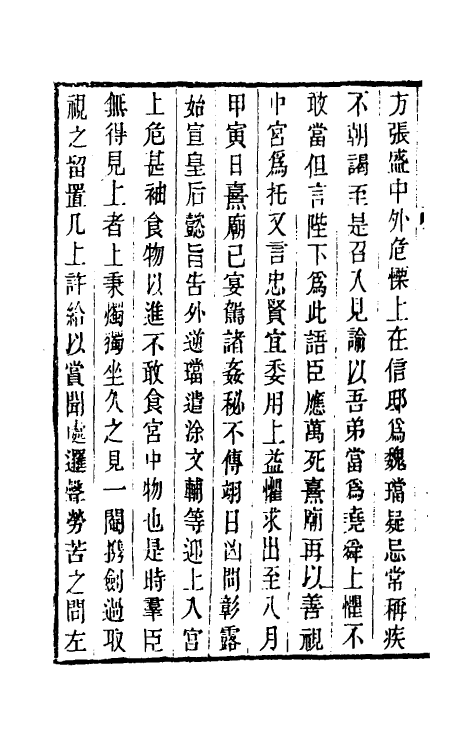 方張盛中外危慄上在信邸爲魏璫疑忌常稱疾
不朝謁至是召入見諭以吾弟當爲堯舜上懼不
敢當但言陛下爲此語臣應萬死熹廟再以善視
中宮爲托又言忠賢宜委用上益懼求出至八月
甲寅日熹廟已宴駕諸姦秘不傳翊日凶問彰露
始宣皇后懿旨告外逆璫遣涂文輔等迎上入宮
上危甚袖食物以進不敢食宮中物也是時羣臣
無得見上者上秉燭獨坐久之見一閹攜劍過取
視之留置几上許給以賞聞處邏聲勞苦之問左